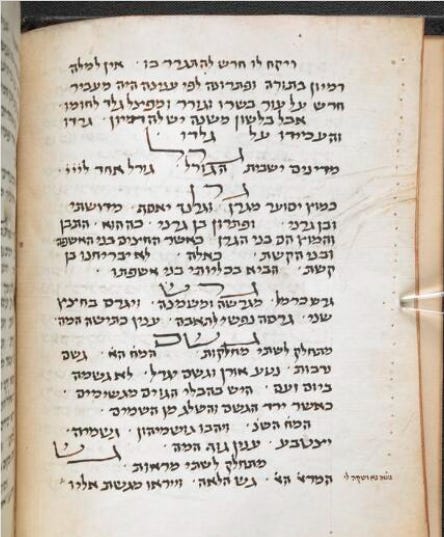 ויקח לו חרש להתגרד בו · אין למלה
דמיון בתורה ופתרונה לפי ענינה היה מעביר
חרש על עור בשרו וגורר ומפיל גלד לחומו
אבל בלשון משנה יש לה דמיון · גרדו
והעבידו על גלדו
גרל
מדינים ישבית הגורל · גורל אחד לייי
גרן
כמוץ יסוער מגרן · וגרנך יאסף · מדושתי
ובן גרני · ופתרון בן גרני · כההוא · התבן
והמוץ הם בני הגרן · כאשר החיצים בני האשפה
ובני הקשת · כאלה · לא יבריחנו בן
קשת · הביא בכליותי בני אשפתו
גרש
גרש כרמל · מגרשה ומשמנה · ויגרס בחצץ
שני · גרסה נפשי לתאבה · ענין כתישה המה
גשם
מתחלק לשתי מחלקות · המח הא · גשם
נדבות · נטע אורן וגשם יגדל · לא גשמה
ביום זעם · היש בהבלי הגוים מגשימים ·
כאשר ירד הגשם והשלג מן השמים ·
המח השנ · ויהבו גושמיהון · וגשמיה ·
יצטבע · ענין גוף המה ·
גש
מתחלק לשתי מראות ·
המרא הא · גש הלאה · וייראו מגשת אליו ·